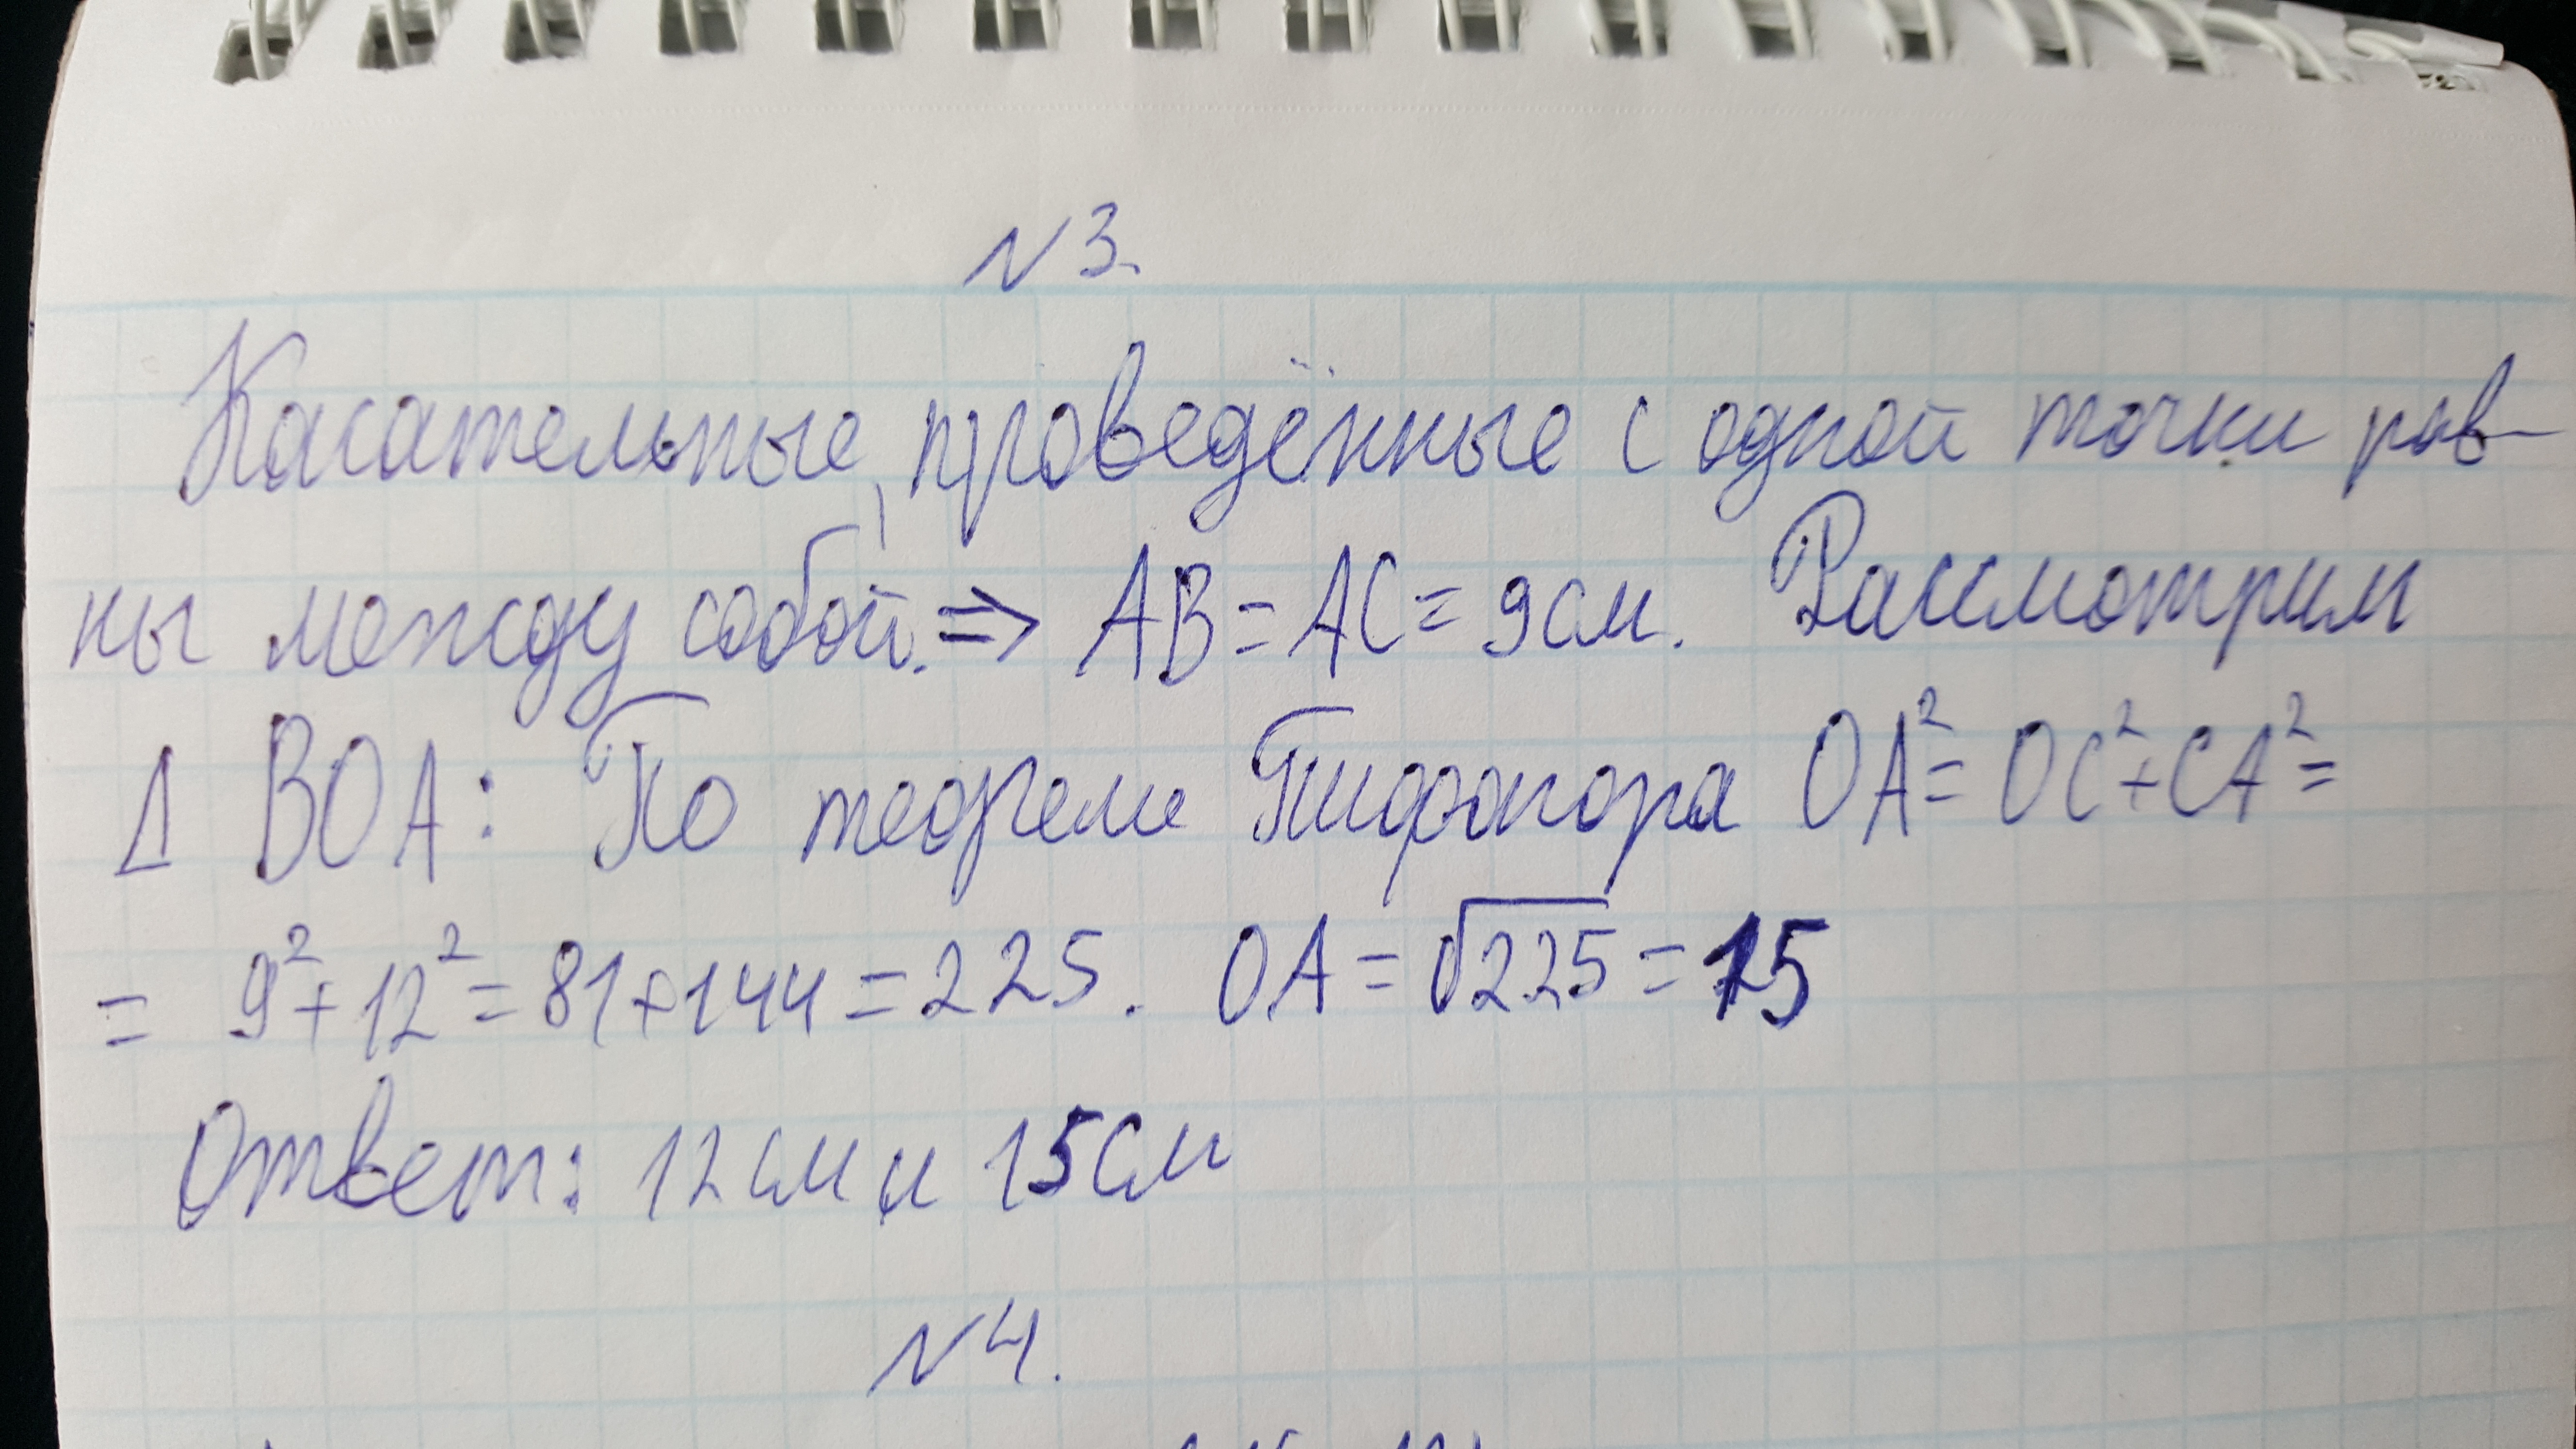 N 3.
Касательные, проведённые с одной точки рав-
ны между собой. => AB = AC = 9 см. Рассмотрим
Δ BOA: По теореме Пифагора OA² = OC² + CA² =
= 9² + 12² = 81 + 144 = 225. OA = √225 = 15
Ответ: 12 см и 15 см
N 4.